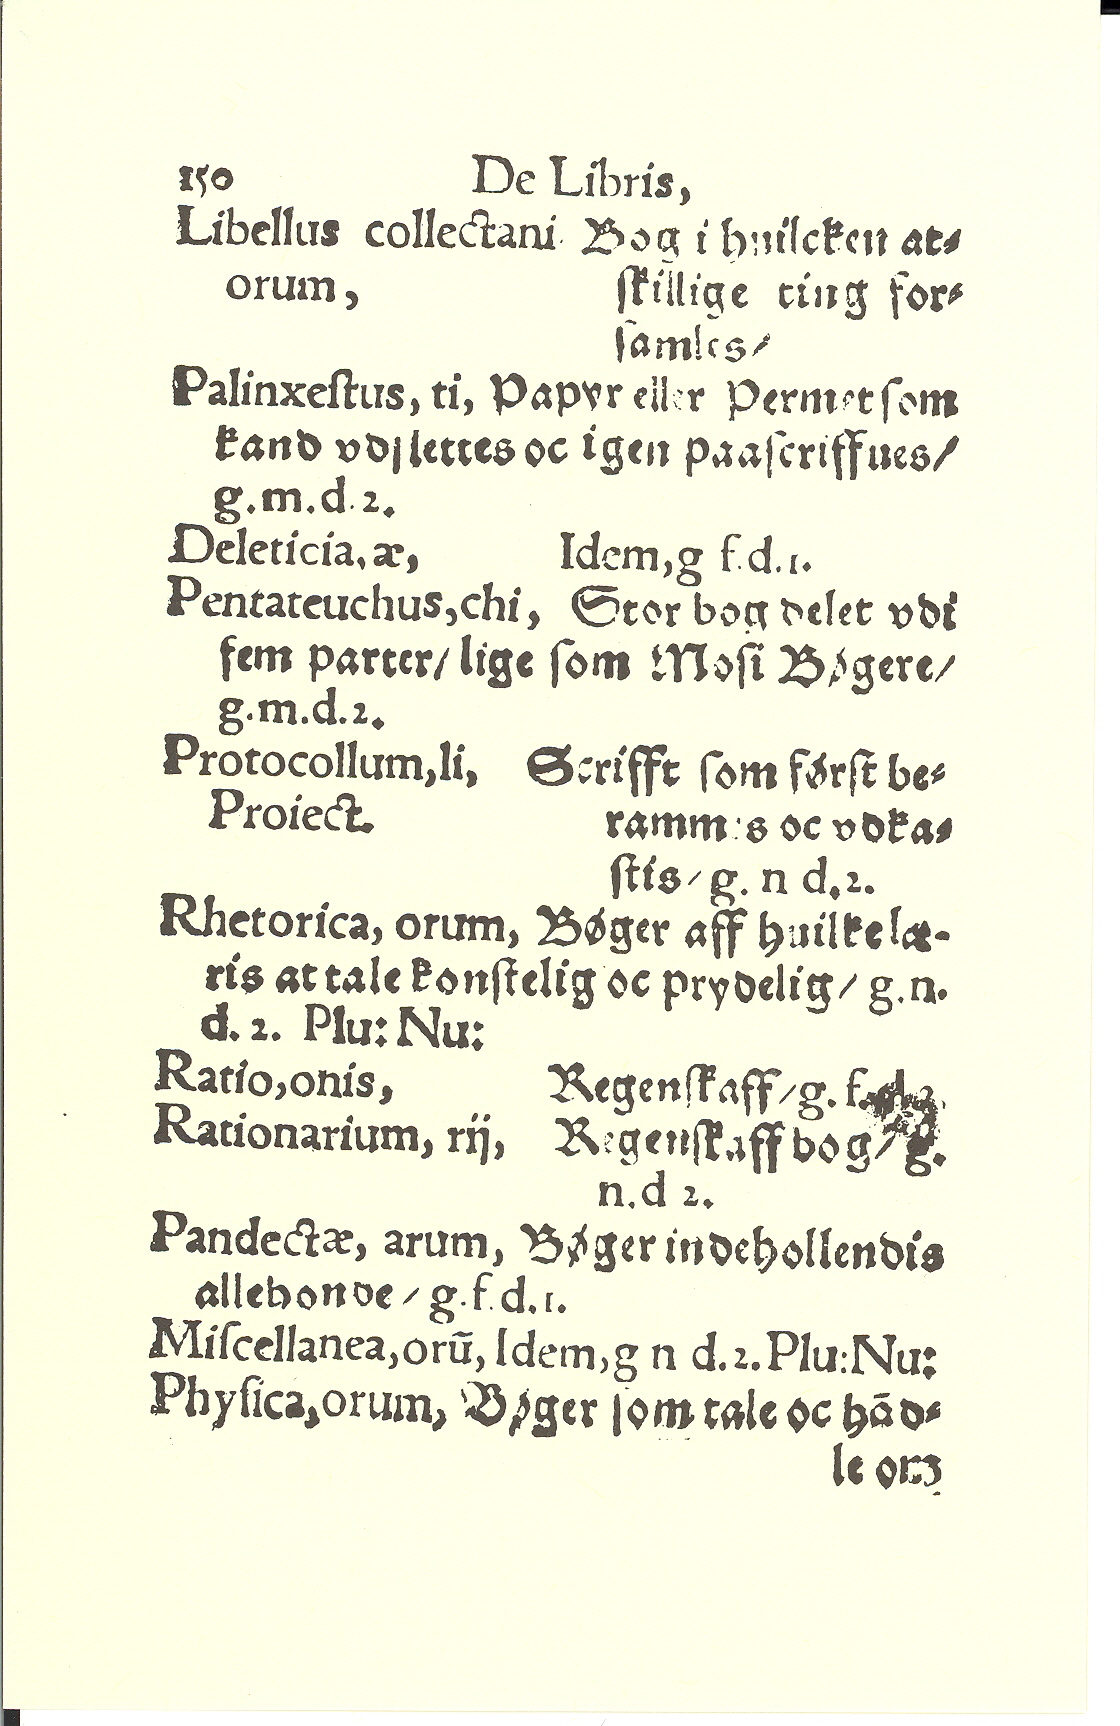 150 De Libris,
Libellus collectani Bog i huilcken at⸗
orum, skillige ting for⸗
samles/
Palinxeſtus, ti, Papyr eller Permet ſom
kand vdſlettes oc igen paaſcriffues/
g.m.d.2.
Deleticia,æ, Idem,g f.d.1.
Pentateuchus,chi, Stor bog delet vdi
fem parter/ lige ſom Moſi Bøgere/
g.m.d.2.
Protocollum,li, Scrifft ſom førſt be⸗
Proiect. rammes oc vdka⸗
ſtis/ g. n d.2.
Rhetorica, orum, Bøger aff huilke læ-
ris at tale konſtelig oc prydelig/ g.n.
d. 2. Plu: Nu:
Ratio,onis, Regenſkaff/g. f.d.2.
Rationarium, rij, Regenſkaff bog/ g.
n.d 2.
Pandectæ, arum, Bøger indehollendis
allehonde/ g.f.d.1.
Miſcellanea,orũ, Idem,g n d.2.Plu:Nu:
Phyſica,orum, Bøger ſom tale oc hãd⸗
le om